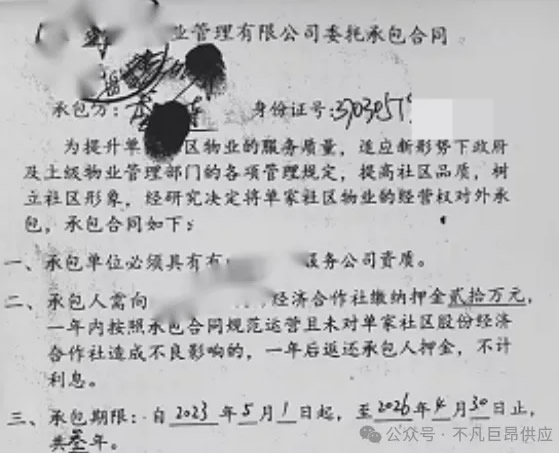 业管理有限公司委托承包合同
承包方: 身份证号:370305
为提升单 区物业的服务质量,适应新形势下政府
及上级物业管理部门的各项管理规定,提高社区品质,树
立社区形象,经研究决定将单家社区物业的经营权对外承
包,承包合同如下:
一、承包单位必须具有 服务公司资质。
二、承包人需向 经济合作社缴纳押金贰拾万元,
一年内按照承包合同规范运营且未对单家社区股份经济
合作社造成不良影响的,一年后返还承包人押金,不计
利息。
三、承包期限:自2023年5月1日起,至2026年4月30日止,
共叁年。
公众号·不凡巨昂供应